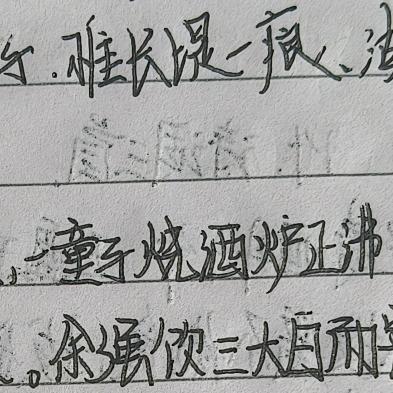 惟长堤一痕、
一童子烧酒炉正沸
。余强饮三大白而